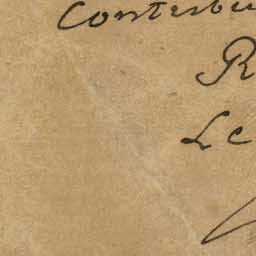 Conterbu
R
Le